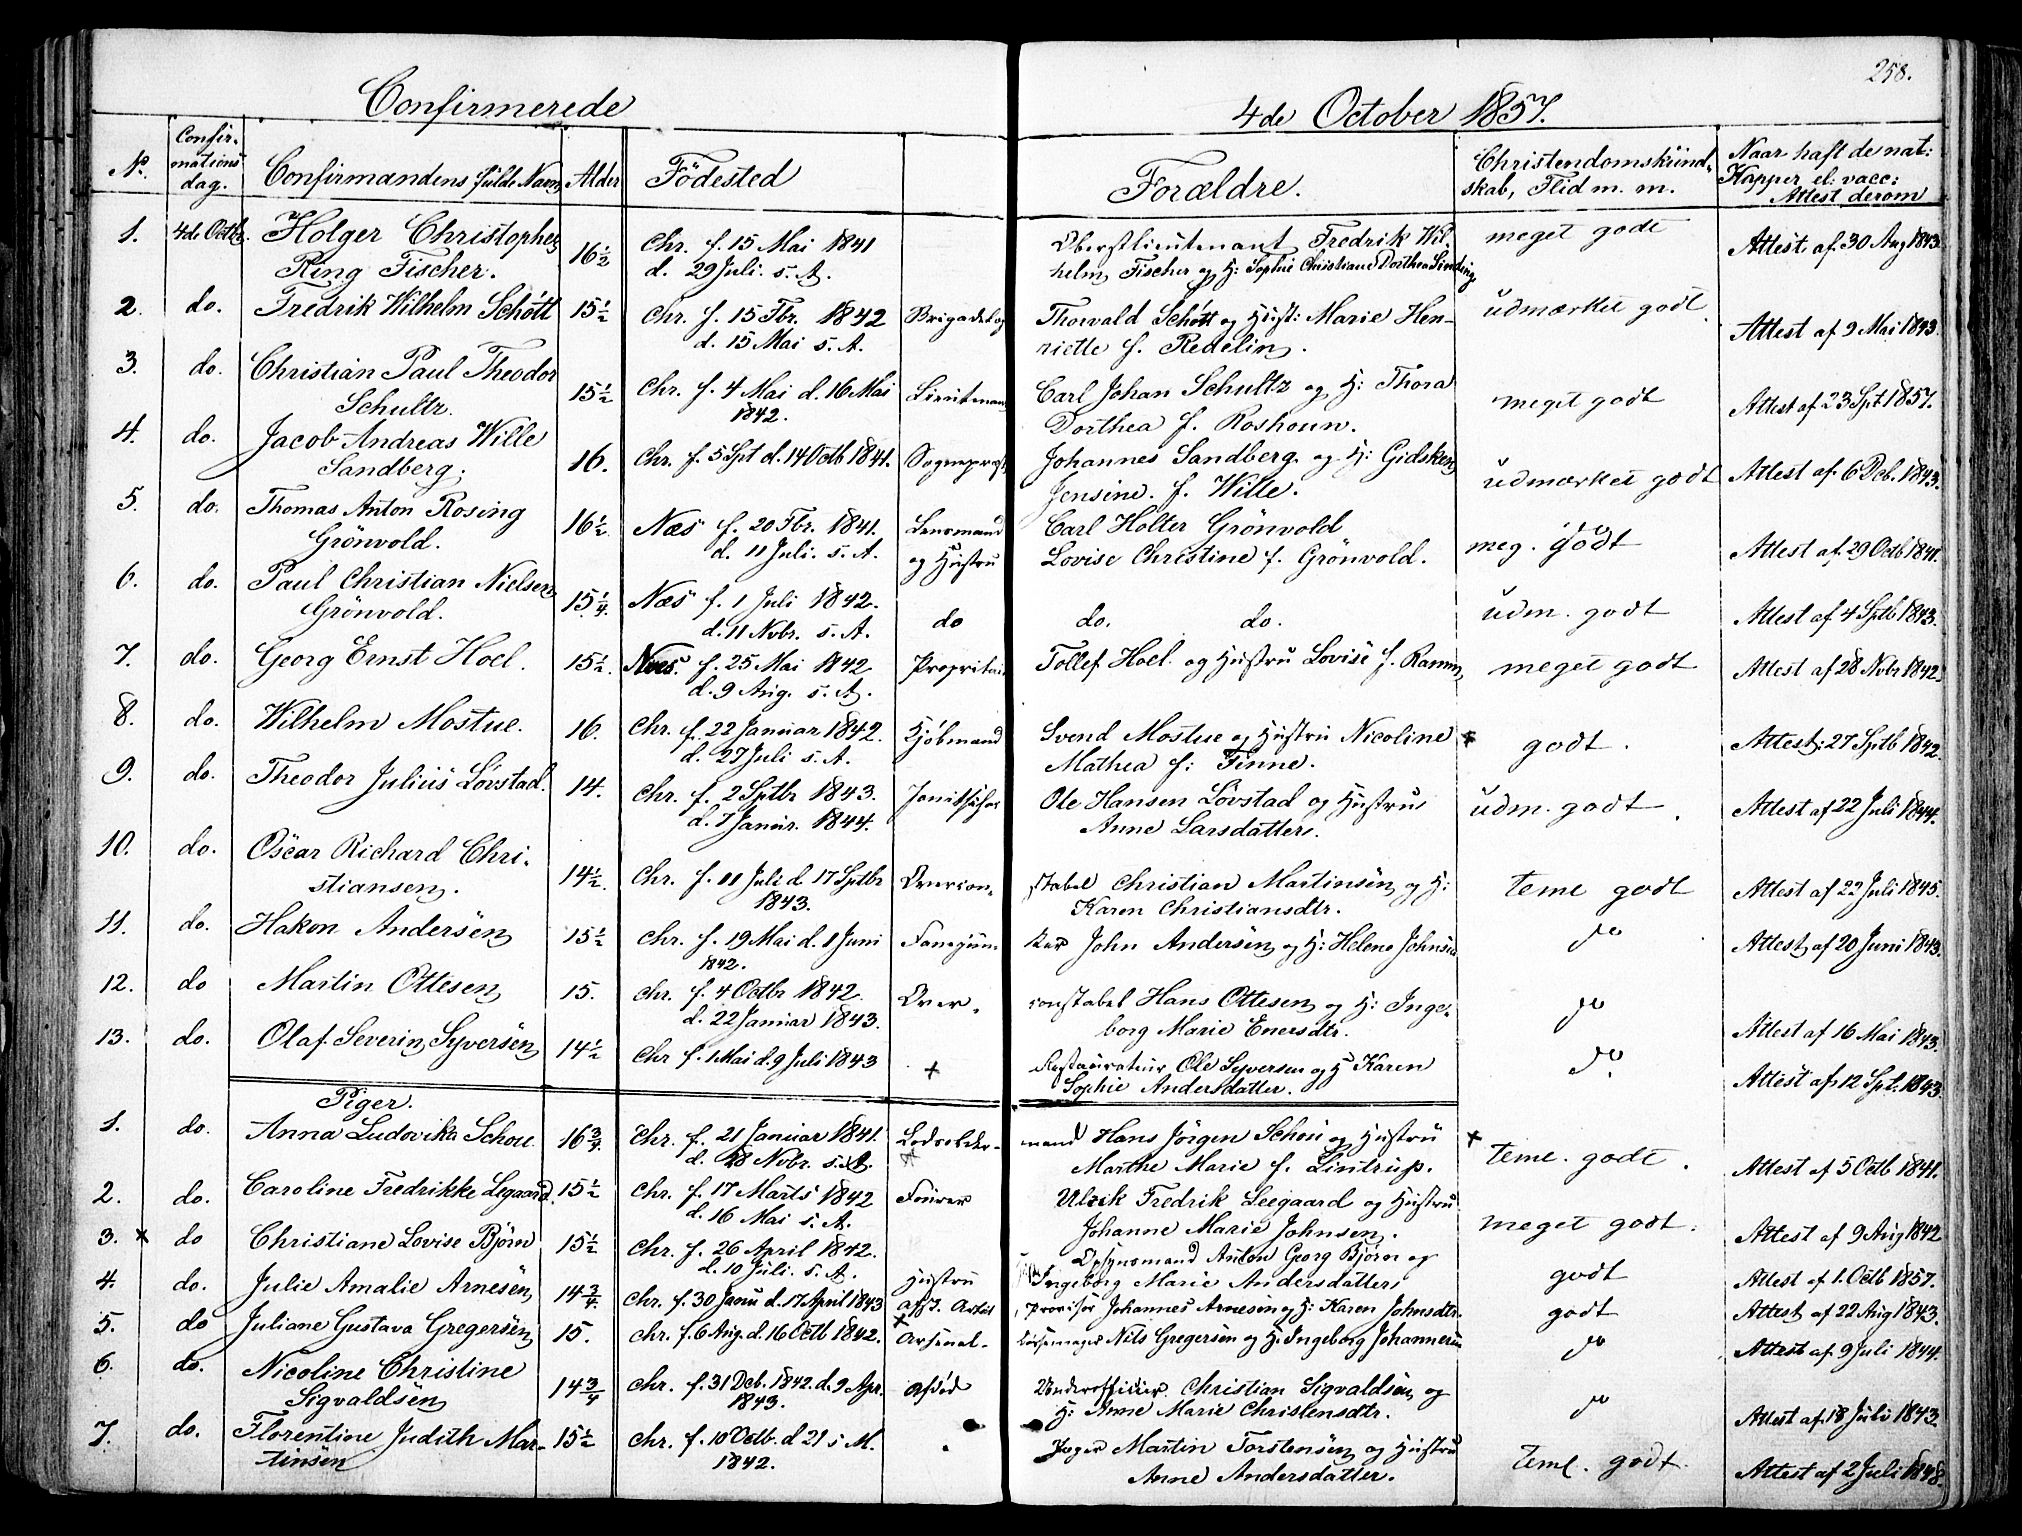 258.
Confirmerede 4de October 1857.
No. Confirmations dag. Confirmandens fulde Navn Alder Födested Forældre. Christendomskundskab, Flid m. m. Naar haft de nat: Kopper el: vacc: Attest derom
1. 4de Octbr. Holger Christopher 16½ Chr. f. 15 Mai 1841 Oberstlieutenant Fredrik Wil- meget godt Attest af 30 Aug 1843.
Ring Fischer. d. 29 Juli. s. A. helm Fischer og H: Sophie Christiane Dorthea Sinding
2. do. Fredrik Wilhelm Schött 15½ Chr. f. 15 Fbr. 1842 Brigadelæg Thorvald Schött og Hust: Marie Hen- udmærket godt Attest af 9 Mai 1843.
d. 15 Mai s. A. riette f. Redelin.
3. do. Christian Paul Theodor 15½ Chr. f. 4 Mai d. 16 Mai Lieutenant Carl Johan Schultz og H: Thora meget godt Attest af 23 Spt 1857.
Schultz. 1842. Dorthea f. Roshoun.
4. do. Jacob Andreas Wille 16. Chr. f. 5 Spt d. 14 Octb 1841. Sogneprest Johannes Sandberg og H: Gidsken udmærket godt Attest af 6 Dcb. 1843.
Sandberg. Jensine. f. Wille.
5. do. Thomas Anton Rosing 16½ Næs f. 20 Fbr. 1841. Lensmand Carl Holter Grönvold meg. godt Attest af 29 Octb 1841.
Grönvold. d. 11 Juli. s. A. og Hustru Lovise Christine f. Grönvold.
6. do. Paul Christian Nielsen 15¼ Næs f. 1 Juli 1842. do do. do. udm. godt Attest af 4 Sptb 1843.
Grönvold. d. 11 Nvbr. s. A.
7. do. Georg Ernst Hoel. 15½. Næs. f. 25 Mai 1842 Propritair Tollef Hoel og Hustru Lovise f. Ramm meget godt Attest af 28 Nvbr 1842.
d. 9 Aug. s. A.
8. do. Wilhelm Mostue. 16. Chr. f. 22 Januar 1842. Kjöbmand Svend Mostue og Hustru Nicoline godt. Attest: 27 Sptb 1842.
d. 27 Juli s. A. Mathea f: Finne.
9. do. Theodor Julius Lövstad. 14. Chr. f. 2 Sptbr 1843. Janitschar Ole Hansen Lövstad og Hustru udm. godt. Attest af 22 Juli 1844.
d. 7 Januar. 1844. Anne Larsdatter.
10. do. Oscar Richard Chri- 14½. Chr. f. 11 Juli d. 17 Sptbr Overcon- stabel Christian Martinsen og H: teme godt Attest af 22 Juli 1845.
stiansen. 1843. Karen Christiansdtr.
11. do. Hakon Andersen 15½ Chr. f. 19 Mai d. 1 Juni John Andersen og H: Helene Johnsen do Attest af 20 Juni 1843.
1842.
12. do Martin Ottesen 15. Chr. f. 4 Octbr 1842. Over- constabel Hans Ottesen og H: Inge- do Attest af 16 Mai 1843.
d. 22 Januar 1843. borg Marie Enersdtr.
13. do. Olaf Severin Syversen 14½ Chr f. 1 Mai d. 9 Juli 1843 + Restaurateur Ole Syversen og H Karen do. Attest af 12 Spt. 1843.
Sophie Andersdatter.
Piger.
1. do. Anna Ludovika Schou 16¾. Chr. f. 21 Januar 1841. Lodsolder- mand Hans Jörgen Schou og Hustru + teme. godt. Attest af 5 Octb 1841.
d. 28 Nvbr. s. A. Marthe Marie f. Lintrup.
2. do. Caroline Fredrikke Legaard. 15½ Chr. f. 17 Marts 1842 Fourer Ulrik Fredrik Leegaard og Hustru meget godt. Attest af 9 Aug 1842
d. 16 Mai s. A. Johanne Marie Johnsen.
3. × do Christiane Lovise Björn 15½ Chr. f. 26 April 1842. Opsynsmand Anton Georg Björn og godt Attest af 1. Octb 1857.
d. 10 Juli. s. A. Hustru Ingeborg Marie Andersdatter
4. do. Julie Amalie Arnesen 14¾. Chr. f. 30 Janu d. 17 April 1843 provisor Johannes Arnesen og H: Karen Johnsdtr. godt Attest af 22 Aug 1843.
5. do Juliane Gustava Gregersen 15. Chr. f. 6 Aug. d. 16 Octb 1842. Arsenal- Nils Gregersen og H: Ingeborg Johannesen do Attest af 9 Juli 1844.
6. do. Nicoline Christine 14¾ Chr. f. 31 Dcb. 1842. d. 9 Apr. Afdöd Underofficier Christian Sigvaldsen og do Attest af 18 Juli 1843.
Sigvaldsen 1843. H: Anne Marie Christensdtr.
7. do. Florentine Judith Mar- 15½ Chr. f. 10 Octb. d 21 s M. Jæger Martin Torstensen og Hustru teml. godt. Attest af 2 Juli 1848.
tinsen 1842. Anne Andersdatter.